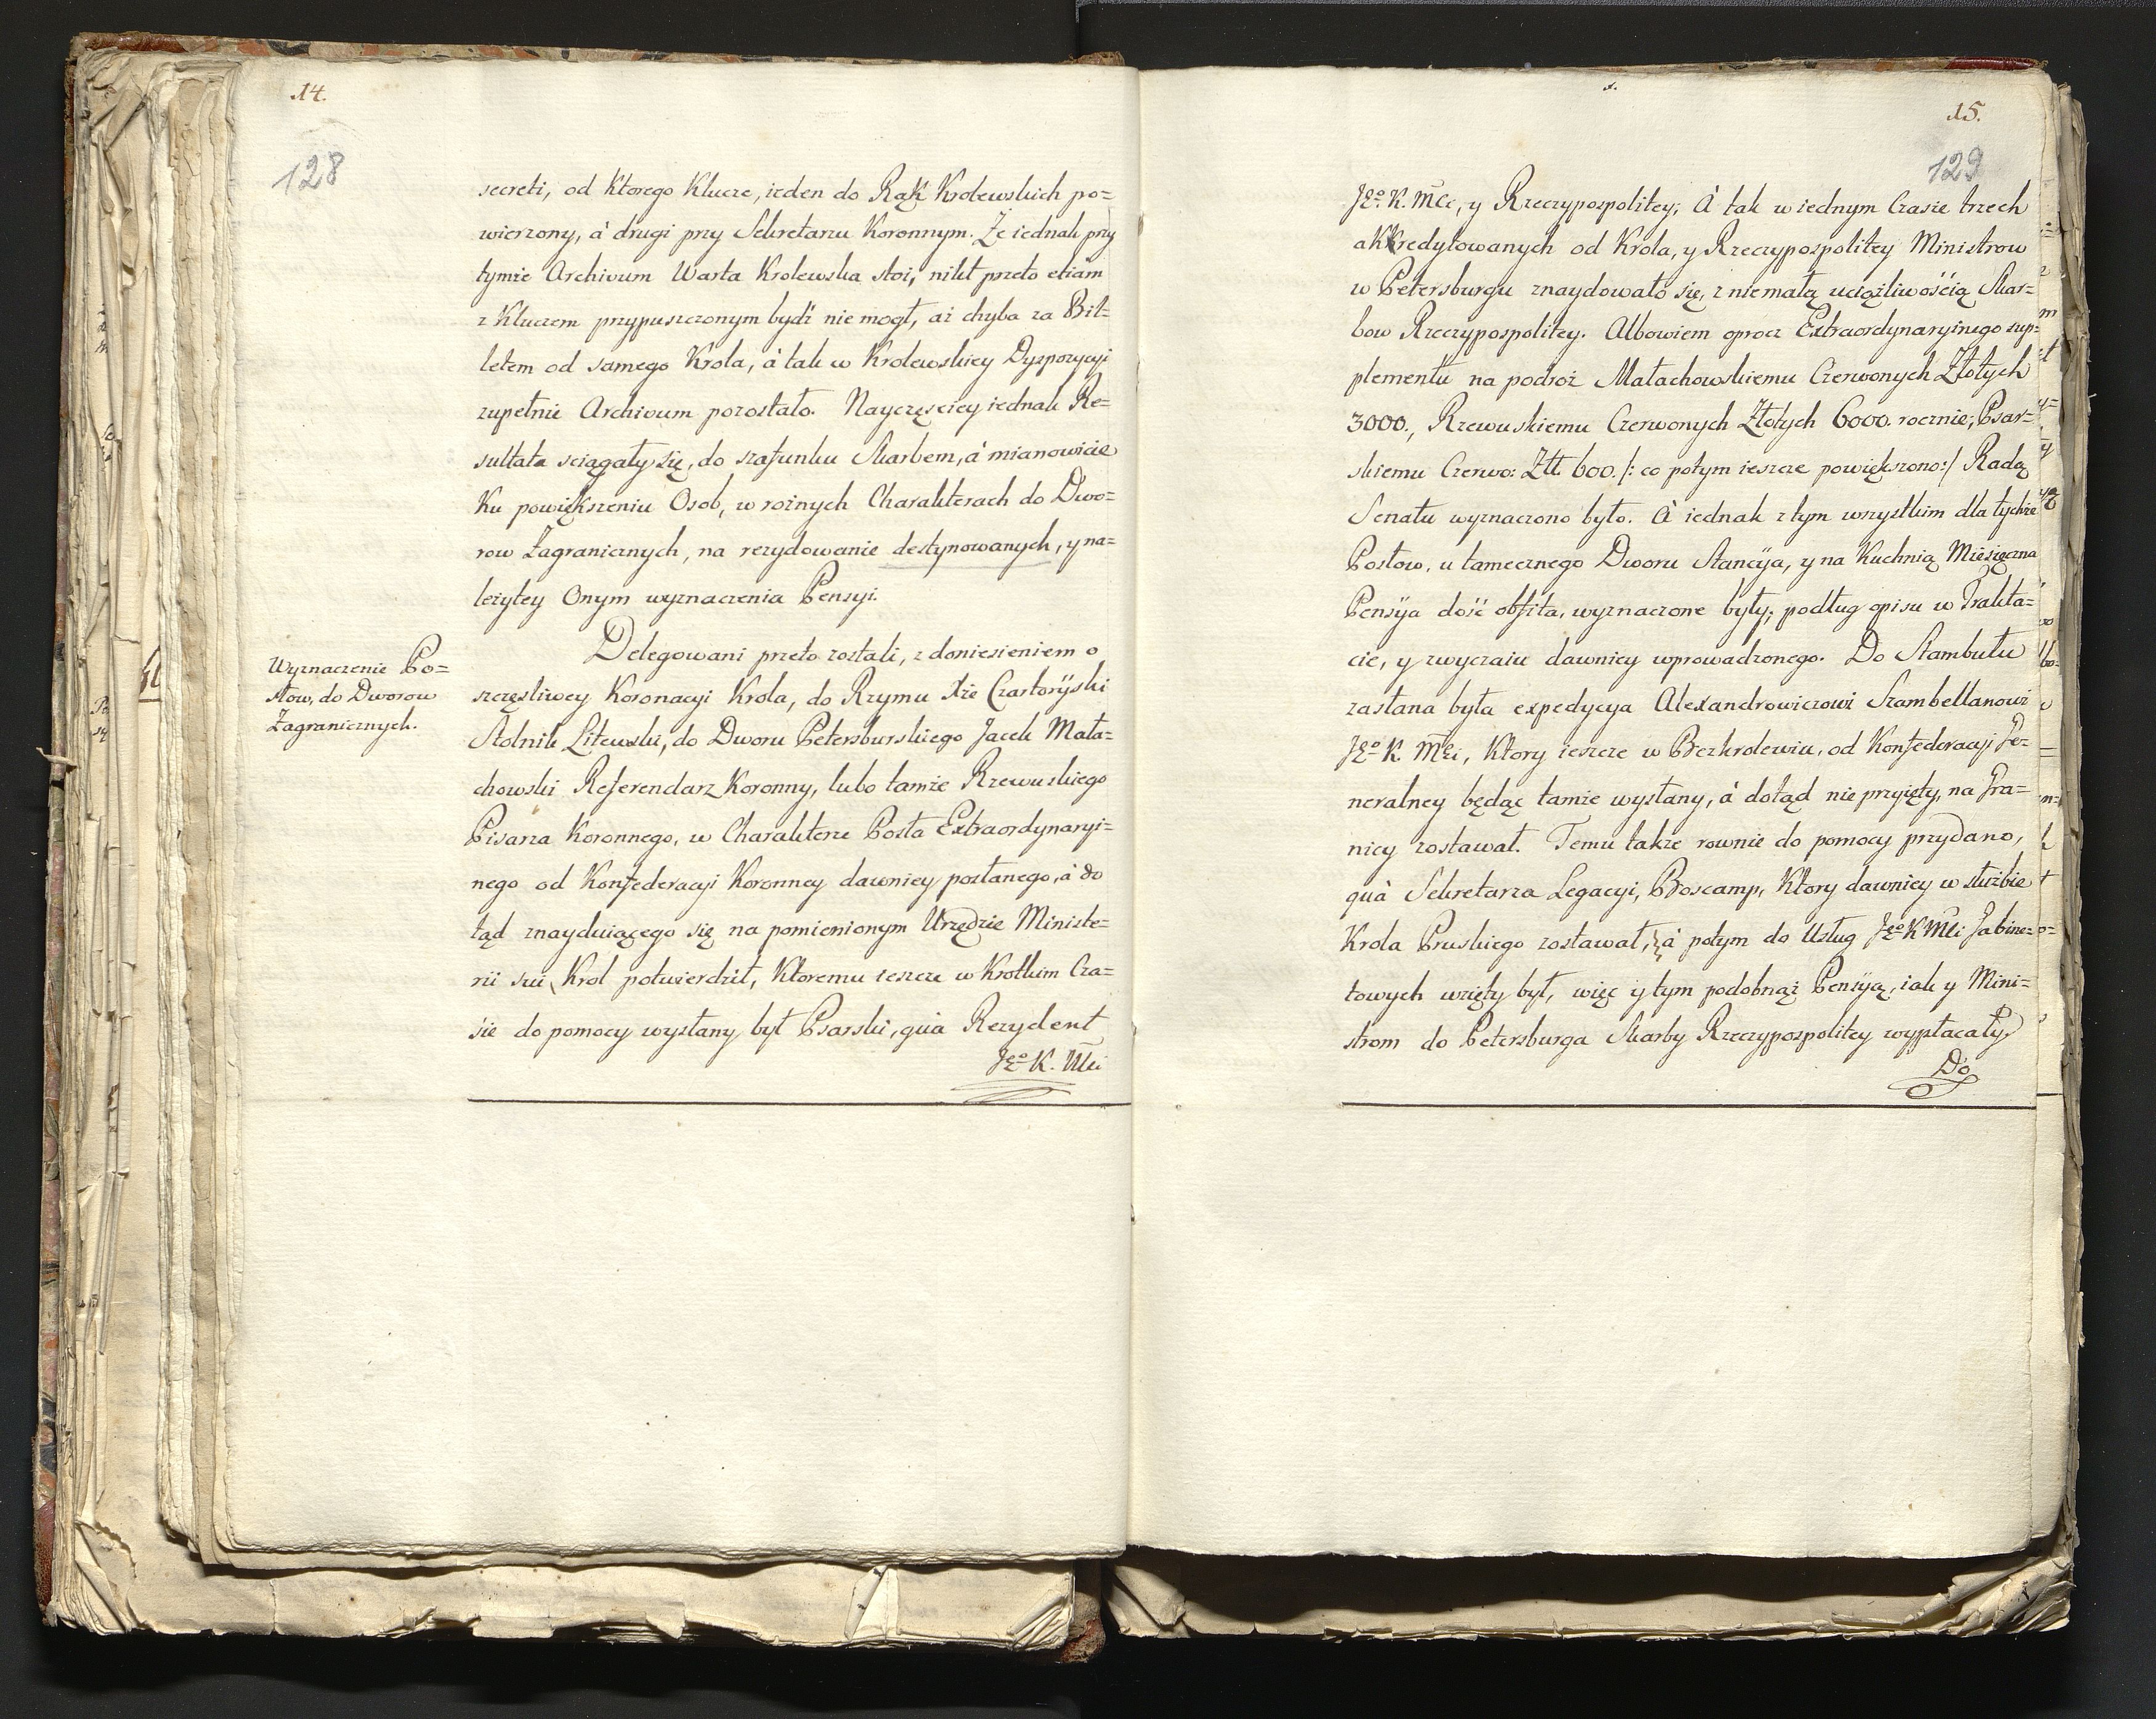 14.
128
secreti, od ktorego Klucze, ieden do Rąk Krolewskich po=
wierzony, à drugi przy Sekretarzu Koronnym. Że iednak przy
tymże Archivum Warta Krolewska stoi, nikt przeto etiam
z Kluczem przypuszczonym bydź nie mogł, aż chyba za Bil=
letem od samego Krola, à tak w Krolewskiey Dyspozycyi
zupełnie Archivum pozostało. Nayczęsciey iednak Re=
sultata sciągały się, do szafunku Skarbem, à mianowicie
Ku powiększeniu Osob, w rożnych Charakterach do Dwo=
row Zagranicznych, na rezydowanie destynowanych, y na=
leżytey Onym wyznaczenia Pensyi.
Wyznaczenie Po=
słow, do Dworow
Zagranicznych.
Delegowani przeto zostali, z doniesieniem o
szczęsliwey Koronacyi Krola, do Rzymu Xże Czartoryski
Stolnik Litewski, do Dworu Petersburskiego Jacek Mała=
chowski Referendarz Koronny, lubo tamże Rzewuskiego
Pisarza Koronnego, w Charakterze Posła Extraordynaryi=
nego od Konfederacyi Koronney dawniey posłanego, à do
tąd znayduiącego się na pomienionym Urzędzie Ministe=
rii sui, Krol potwierdził, Ktoremu ieszcze w Krotkim Cza=
sie do pomocy wysłany był Psarski, quà Rezydent
Jego K. Mci
15.
129
Jego K. Mci, y Rzeczypospolitey; À tak w iednym Czasie trzech
akkredytowanych od Krola, y Rzeczypospolitey Ministrow
w Petersburgu znaydowało się, z niemałą uciążliwością Skar=
bow Rzeczypospolitey. Albowiem oprocz Extraordynaryinego sup=
plementu na podroż Małachowskiemu Czerwonych Złotych
3000., Rzewuskiemu Czerwonych Złotych 6000. rocznie, Psar=
skiemu Czerwo: Złł 600. /: co potym ieszcze powiększono:/ Radą
Senatu wyznaczono było. À iednak z tym wszystkim dla tychże
Posłow, u tamecznego Dworu Stancÿa, y na Kuchnią Miesięczna
Pensÿa dość obfita, wyznaczone były; podług opisu w Trakta=
cie, y zwyczaiu dawniey wprowadzonego. Do Stambułu
zasłana była expedycya Alexandrowiczowi Szambellanowi
Jego K. Mci, Ktory ieszcze w Bezkrolewiu, od Konfederacyi Ge=
neralney będąc tamże wysłany, à dotąd nie przyięty, na Gra=
nicy zostawał. Temu także rownie do pomocy przydano,
quà Sekretarza Legacyi, Boscamp, Ktory dawniey w służbie
Krola Pruskiego zostawał, à potym do Usług Jego K Mci Gabine=
towych wzięty był, więc y tym podobnąż Pensyą, iak y Mini=
strom do Petersburga Skarby Rzeczypospolitey wypłacały
Do